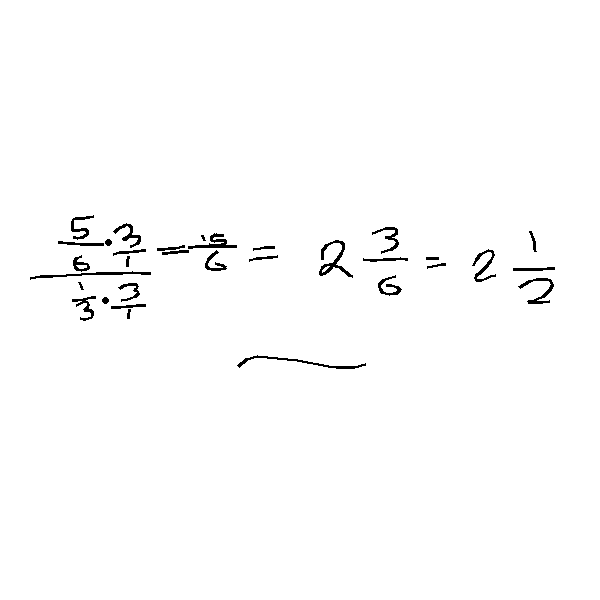 (5/6 · 3/1)/(1/3 · 3/1) = 15/6 = 2 3/6 = 2 1/2